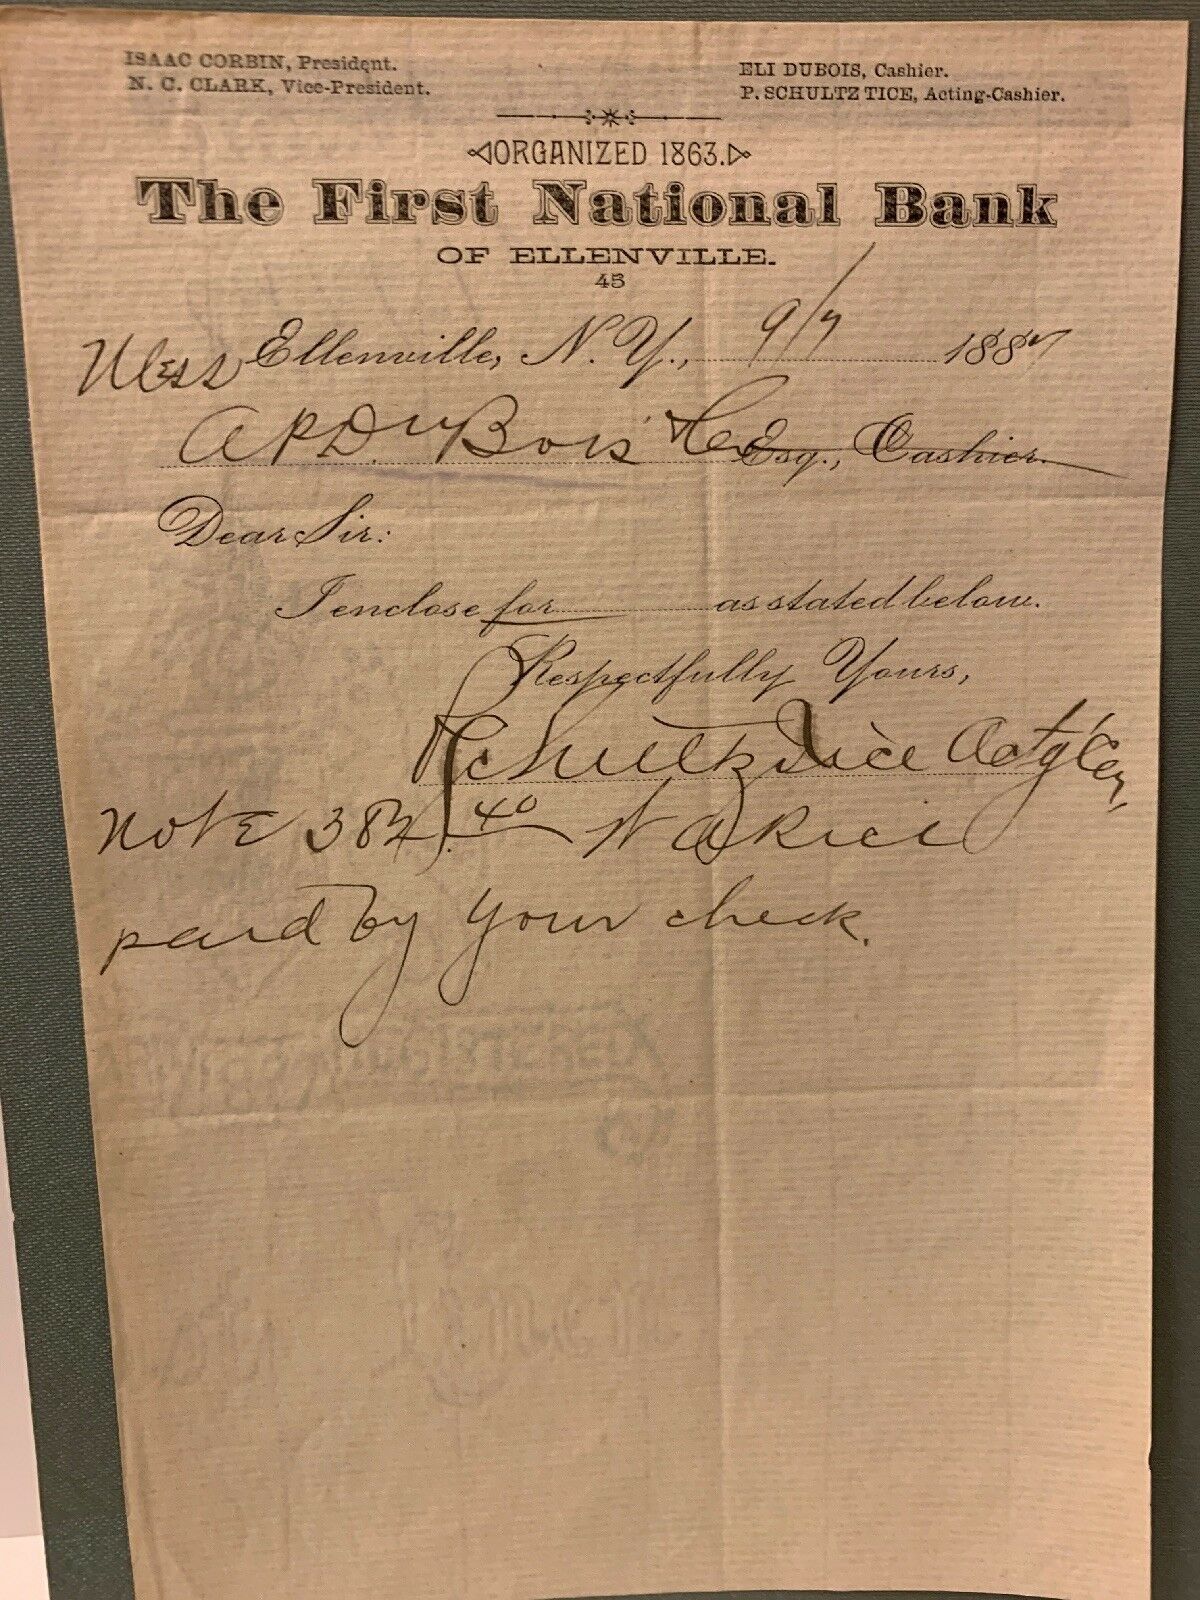 ISAAC CORBIN, President.
N. C. CLARK, Vice-President.
ELI DUBOIS, Cashier.
P. SCHULTZ TICE, Acting-Cashier.
ORGANIZED 1863.
The First National Bank
OF ELLENVILLE.
45
Ellenville, N. Y., 9/7 1887
Mess
A P DuBois & Co Esq., Cashier.
Dear Sir:
I enclose for as stated below.
Respectfully Yours,
P Schultz Tice Actg Cas,
Note 382.40 N A Rice
paid by your check.